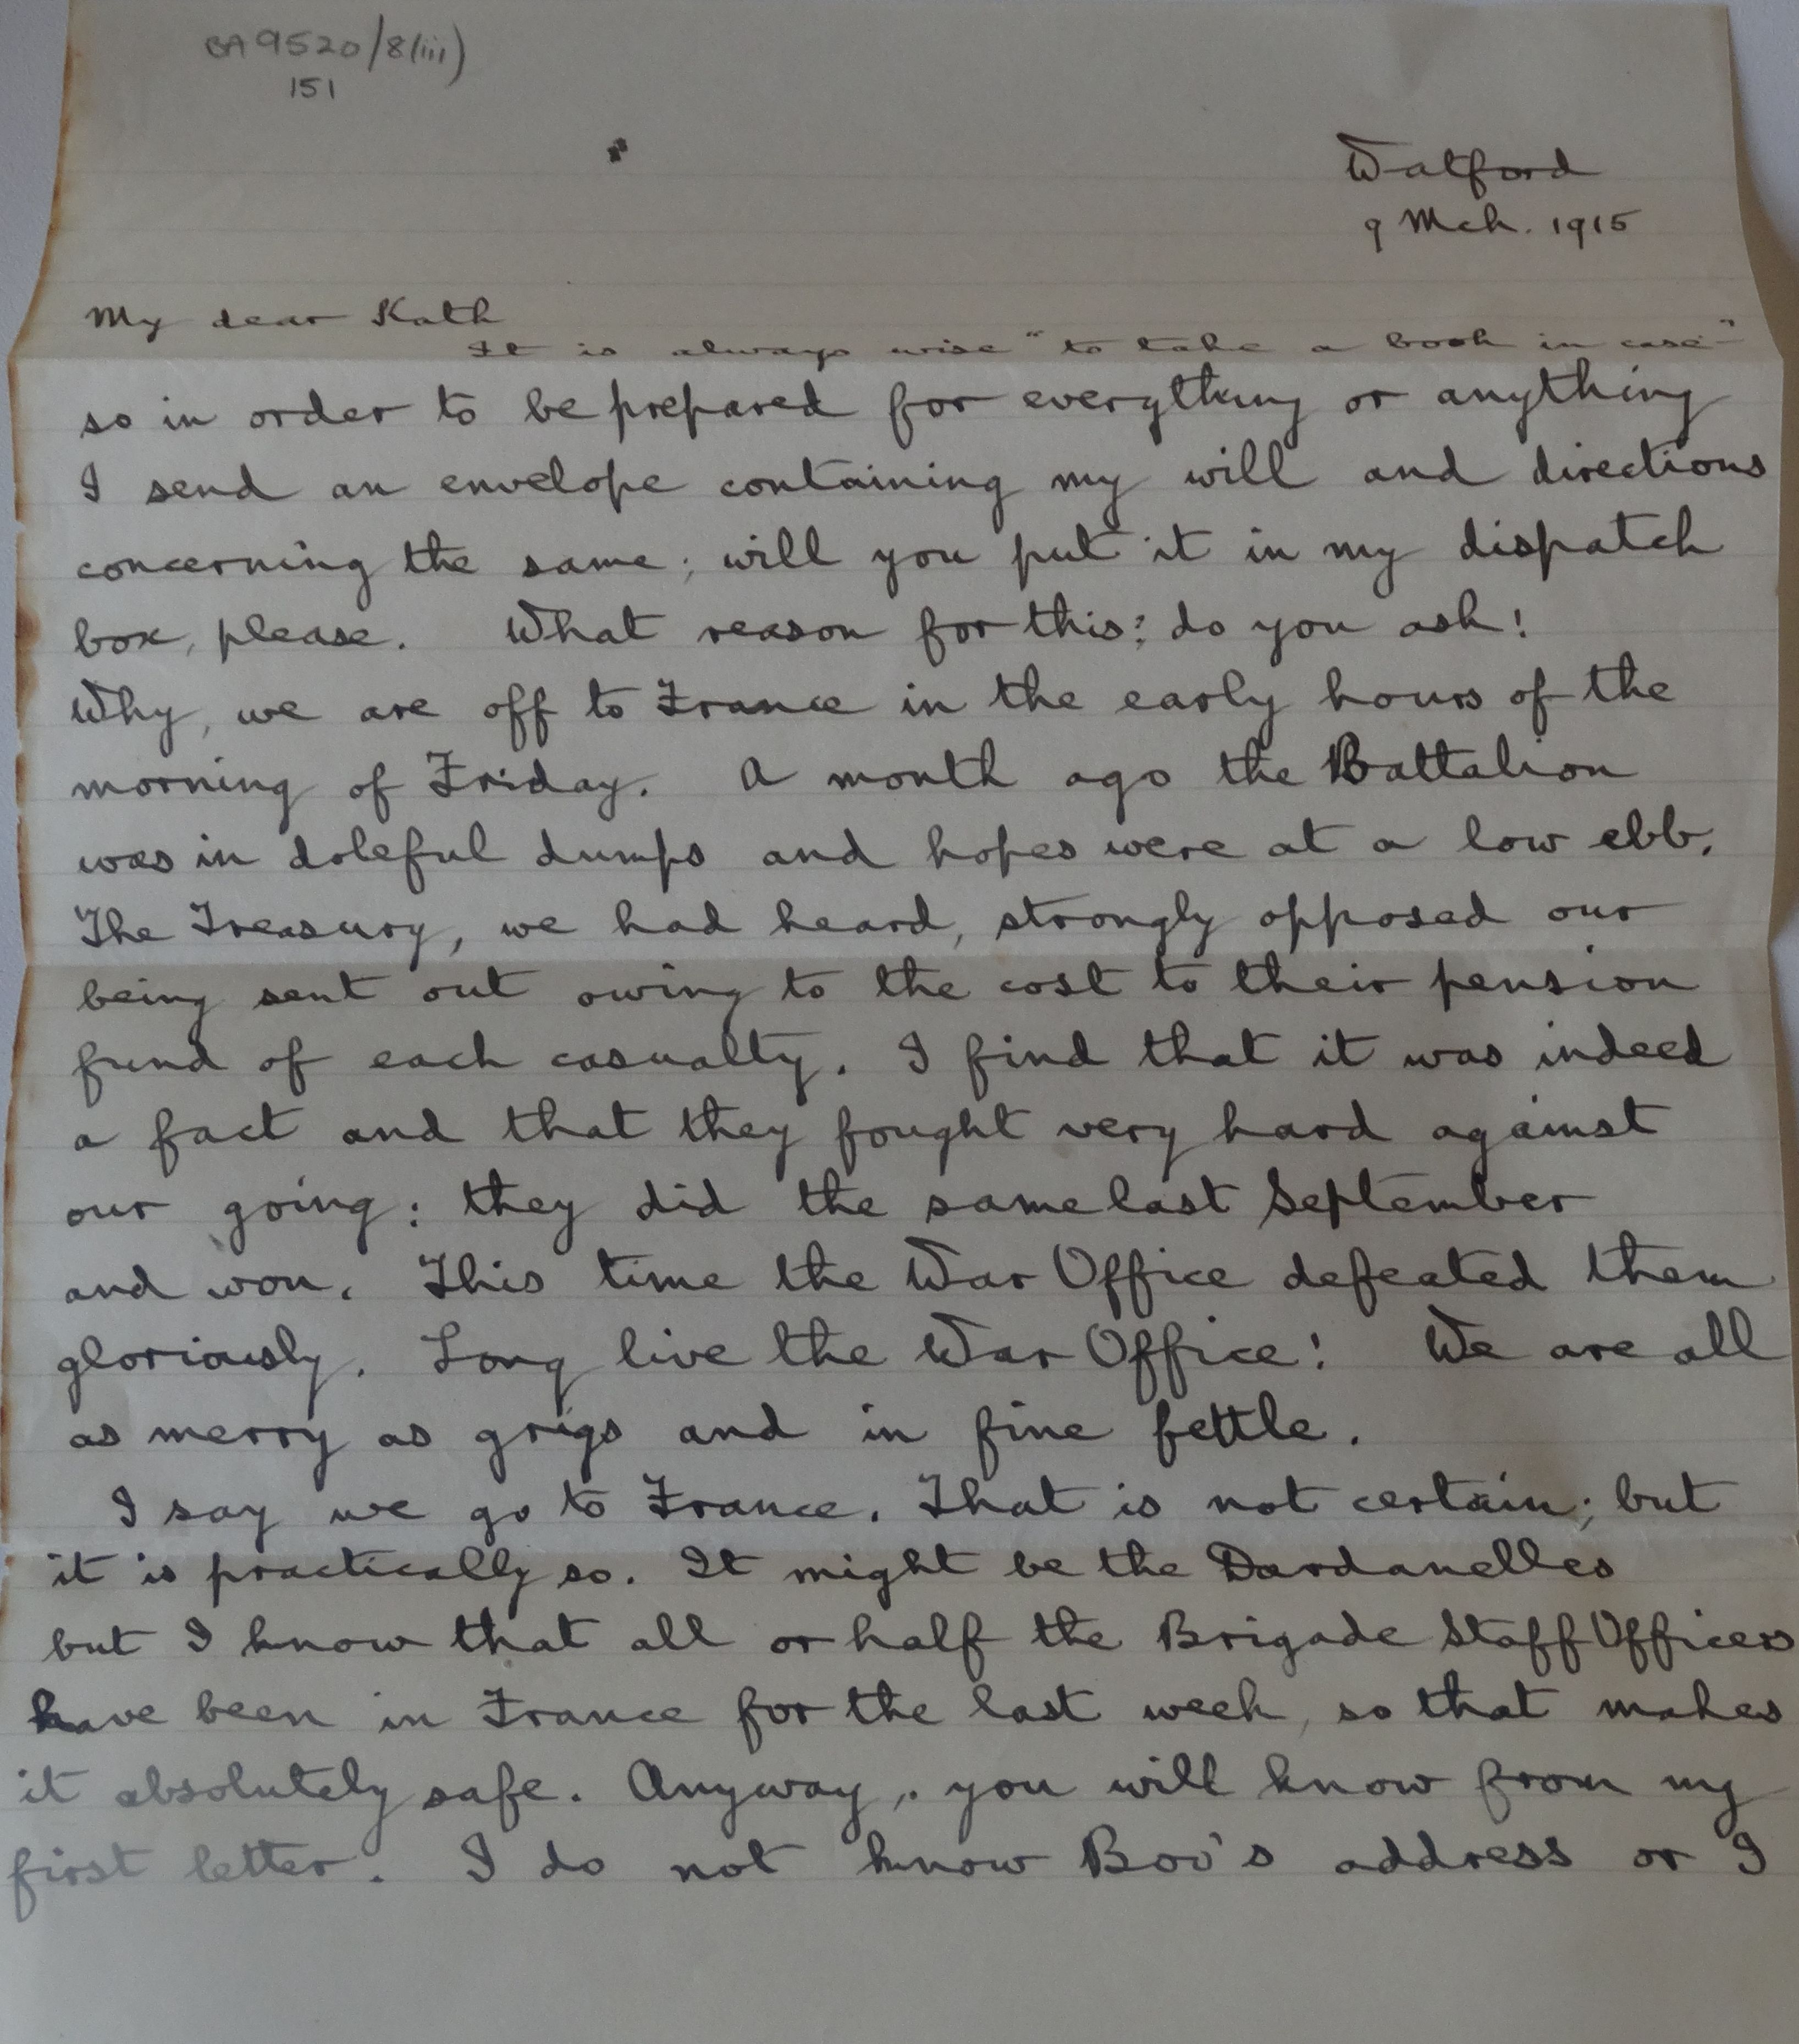 BA9520/8(iii)
151
Watford
9 Mch. 1915
My dear Kath
It is always wise "to take a book in case"
so in order to be prepared for everything or anything
I send an envelope containing my will and directions
concerning the same; will you put it in my dispatch
box, please. What reason for this: do you ask!
Why, we are off to France in the early hours of the
morning of Friday. A month ago the Battalion
was in doleful dumps and hopes were at a low ebb.
The Treasury, we had heard, strongly opposed our
being sent out owing to the cost to their pension
fund of each casualty. I find that it was indeed
a fact and that they fought very hard against
our going: they did the same last September
and won. This time the War Office defeated them
gloriously. Long live the War Office! We are all
as merry as grigs and in fine fettle.
I say we go to France. That is not certain; but
it is practically so. It might be the Dardanelles
but I know that all or half the Brigade Staff Officers
have been in France for the last week, so that makes
it absolutely safe. Anyway, you will know from my
first letter. I do not know Boo's address or I